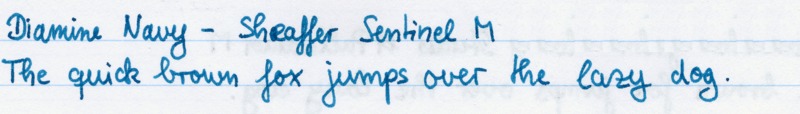 Diamine Navy - Sheaffer Sentinel M
The quick brown fox jumps over the lazy dog.